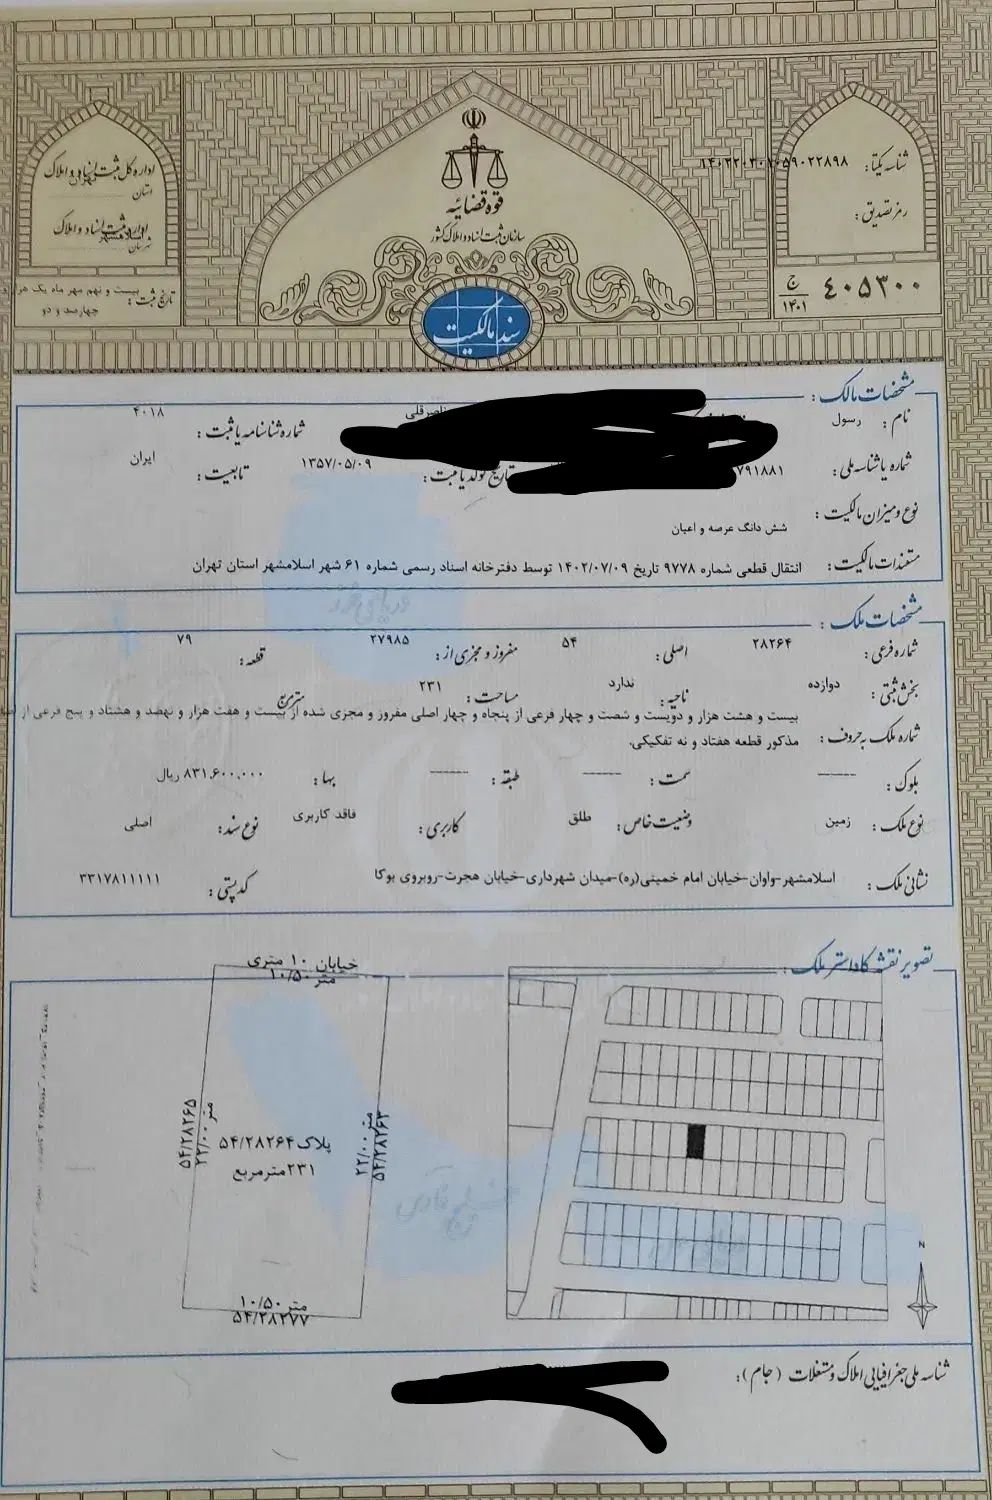 قوه قضائیه
سازمان ثبت اسناد و املاک کشور
سند مالکیت
اداره کل ثبت اسناد و املاک
استان تهران
اداره ثبت اسناد و املاک
شهرستان اسلامشهر
تاریخ ثبت: بیست و نهم مهر ماه یک هزار
چهارصد و دو
شناسه یکتا: ۱۴۰۲۲۰۳۰۱۰۵۹۰۲۲۸۹۸
رمز تصدیق:
۴۰۵۳۰۰ ج ۱۴۰۱
مشخصات مالک:
نام: رسول
شماره شناسنامه یا ثبت: ۴۰۱۸
شماره یا شناسه ملی: ۷۹۱۸۸۱ تاریخ تولد یا ثبت: ۱۳۵۷/۰۵/۰۹ تابعیت: ایران
نوع و میزان مالکیت: شش دانگ عرصه و اعیان
مستندات مالکیت: انتقال قطعی شماره ۹۷۷۸ تاریخ ۱۴۰۲/۰۷/۰۹ توسط دفترخانه اسناد رسمی شماره ۶۱ شهر اسلامشهر استان تهران
مشخصات ملک:
شماره فرعی: ۲۸۲۶۴ اصلی: ۵۴ مفروز و مجزی از: ۲۷۹۸۵ قطعه: ۷۹
بخش ثبتی: دوازده ناحیه: ندارد مساحت: ۲۳۱ مترمربع
شماره ملک به حروف: بیست و هشت هزار و دویست و شصت و چهار فرعی از پنجاه و چهار اصلی مفروز و مجزی شده از بیست و هفت هزار و نهصد و هشتاد و پنج فرعی از اصلی
مذکور قطعه هفتاد و نه تفکیکی.
بلوک: ------ سمت: ------ طبقه: ------ بها: ۸۳۱,۶۰۰,۰۰۰ ریال
نوع ملک: زمین وضعیت خاص: طلق کاربری: فاقد کاربری نوع سند: اصلی
نشانی ملک: اسلامشهر-واوان-خیابان امام خمینی(ره)-میدان شهرداری-خیابان هجرت-روبروی بوکا
کدپستی: ۳۳۱۷۸۱۱۱۱۱
تصویر نقشه کاداستر ملک:
خیابان ۱۰ متری
۱۰/۵۰ متر
۵۴/۲۸۲۶۵
۲۲/۰۰ متر
پلاک ۵۴/۲۸۲۶۴
۲۳۱مترمربع
۲۲/۰۰ متر
۵۴/۲۸۲۶۳
۱۰/۵۰ متر
۵۴/۲۸۲۷۷
N
شناسه ملی جغرافیایی املاک و مستغلات (جام):